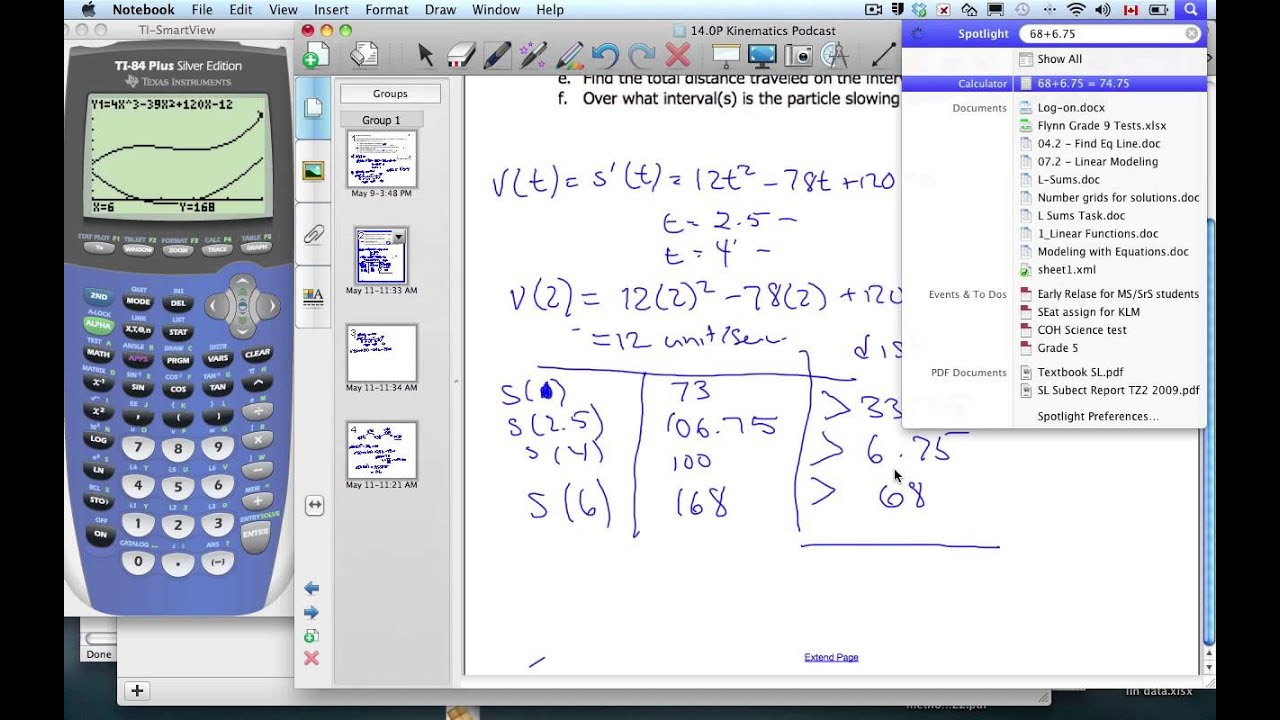 Notebook File Edit View Insert Format Draw Window Help
TI-SmartView
14.0P Kinematics Podcast
Spotlight 68+6.75
Show All
Calculator 68+6.75 = 74.75
Documents Log-on.docx
Flynn Grade 9 Tests.xlsx
04.2 - Find Eq Line.doc
07.2 - Linear Modeling
L-Sums.doc
Number grids for solutions.doc
L Sums Task.doc
1_Linear Functions.doc
Modeling with Equations.doc
sheet1.xml
Events & To Dos Early Relase for MS/SrS students
SEat assign for KLM
COH Science test
Grade 5
PDF Documents Textbook SL.pdf
SL Subect Report TZ2 2009.pdf
Spotlight Preferences...
TI-84 Plus Silver Edition
TEXAS INSTRUMENTS
Y1=4X^3-39X2+120X-12
X=6 Y=168
STAT PLOT F1 TBLSET F2 FORMAT F3 CALC F4 TABLE F5
Y= WINDOW ZOOM TRACE GRAPH
QUIT INS
2ND MODE DEL
A-LOCK LINK LIST
ALPHA X,T,Θ,n STAT
TEST A ANGLE B DRAW C DISTR
MATH APPS PRGM VARS CLEAR
MATRIX D SIN⁻¹ E COS⁻¹ F TAN⁻¹ G π H
x⁻¹ SIN COS TAN ^
x² , ( ) ÷
LOG 7 8 9 ×
LN 4 5 6 −
STO 1 2 3 +
OFF CATALOG ANS ? ENTRY SOLVE
ON 0 . (−) ENTER
Groups
Group 1
May 9-3:48 PM
May 11-11:33 AM
May 11-11:34 AM
May 11-11:21 AM
e. Find the total distance traveled on the
f. Over what interval(s) is the particle slowing
v(t) = s'(t) = 12t² - 78t + 120
t = 2.5 -
t = 4 -
v(2) = 12(2)² - 78(2) + 120
= 12 unit/sec
dis
s( ) 73
s(2.5) 106.75 > 33
s(4) 100 > 6.75
s(6) 168 > 68
Extend Page
Done
lin data.xlsx